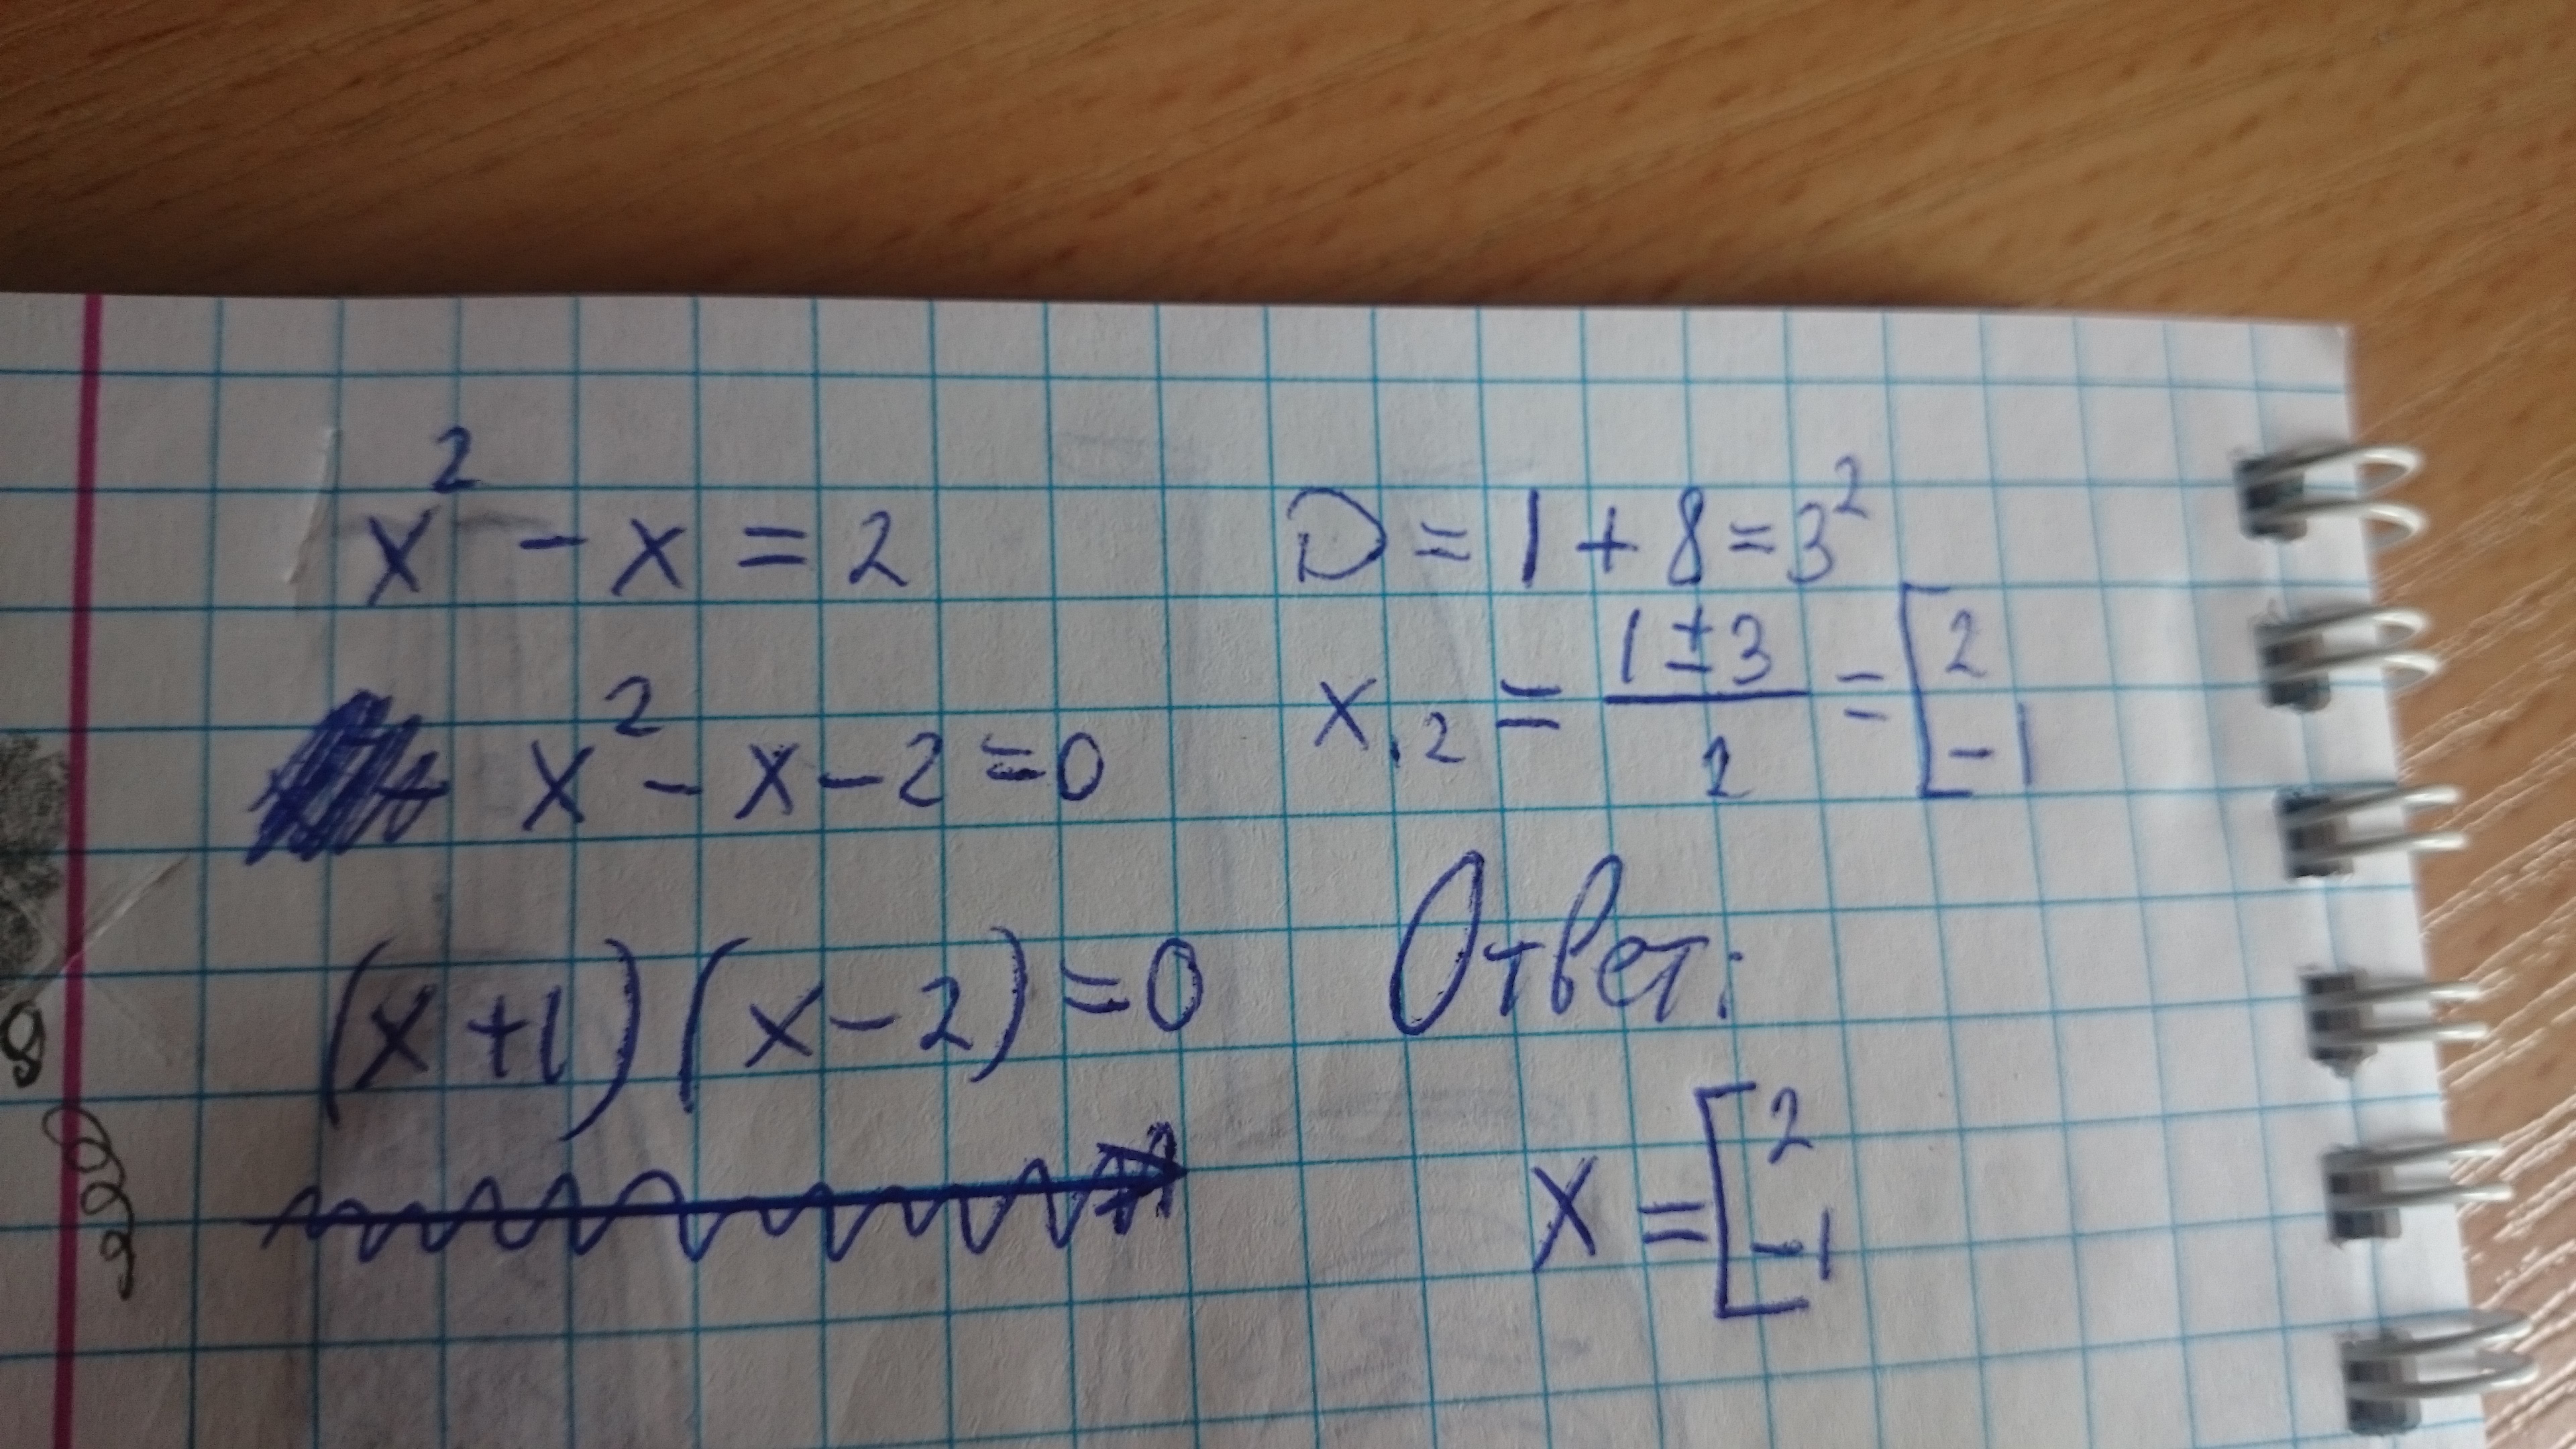 x² - x = 2
x² - x - 2 = 0
(x + 1) (x - 2) = 0
D = 1 + 8 = 3²
x,₂ = (1 ± 3)/2 = [2
-1
Ответ:
x = [2
-1